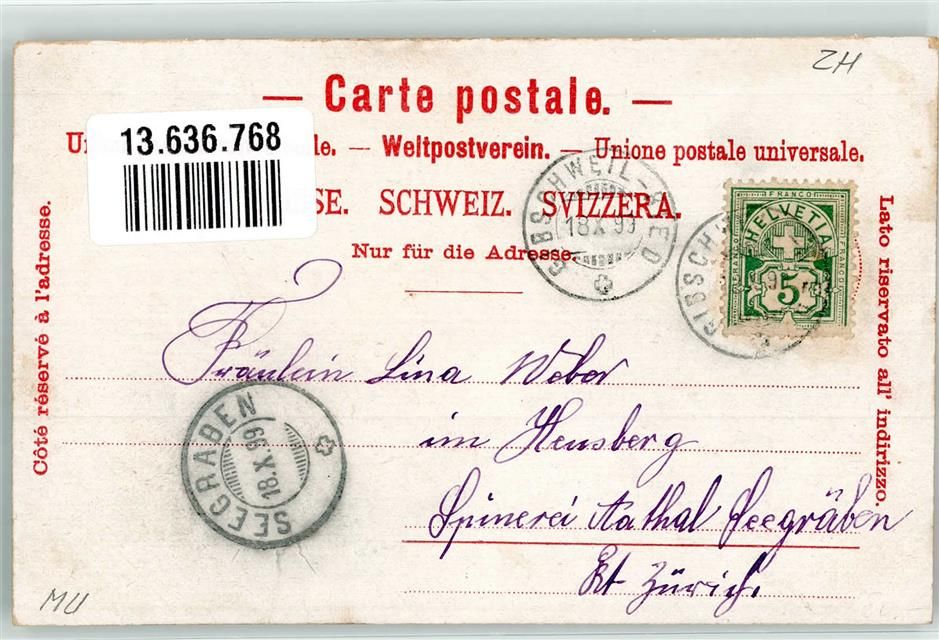 ZH
— Carte postale. —
13.636.768
Un le. — Weltpostverein. — Unione postale universale.
SE. SCHWEIZ. SVIZZERA.
Nur für die Adresse.
Côté réservé à l'adresse.
Lato riservato all' indirizzo.
18.X.99
FRANCO
HELVETIA
5
Fräulein Lina Weber
im Heusberg
Spinerei Aathal Seegräben
Kt Zürich.
SEEGRABEN
18.X.99
MU